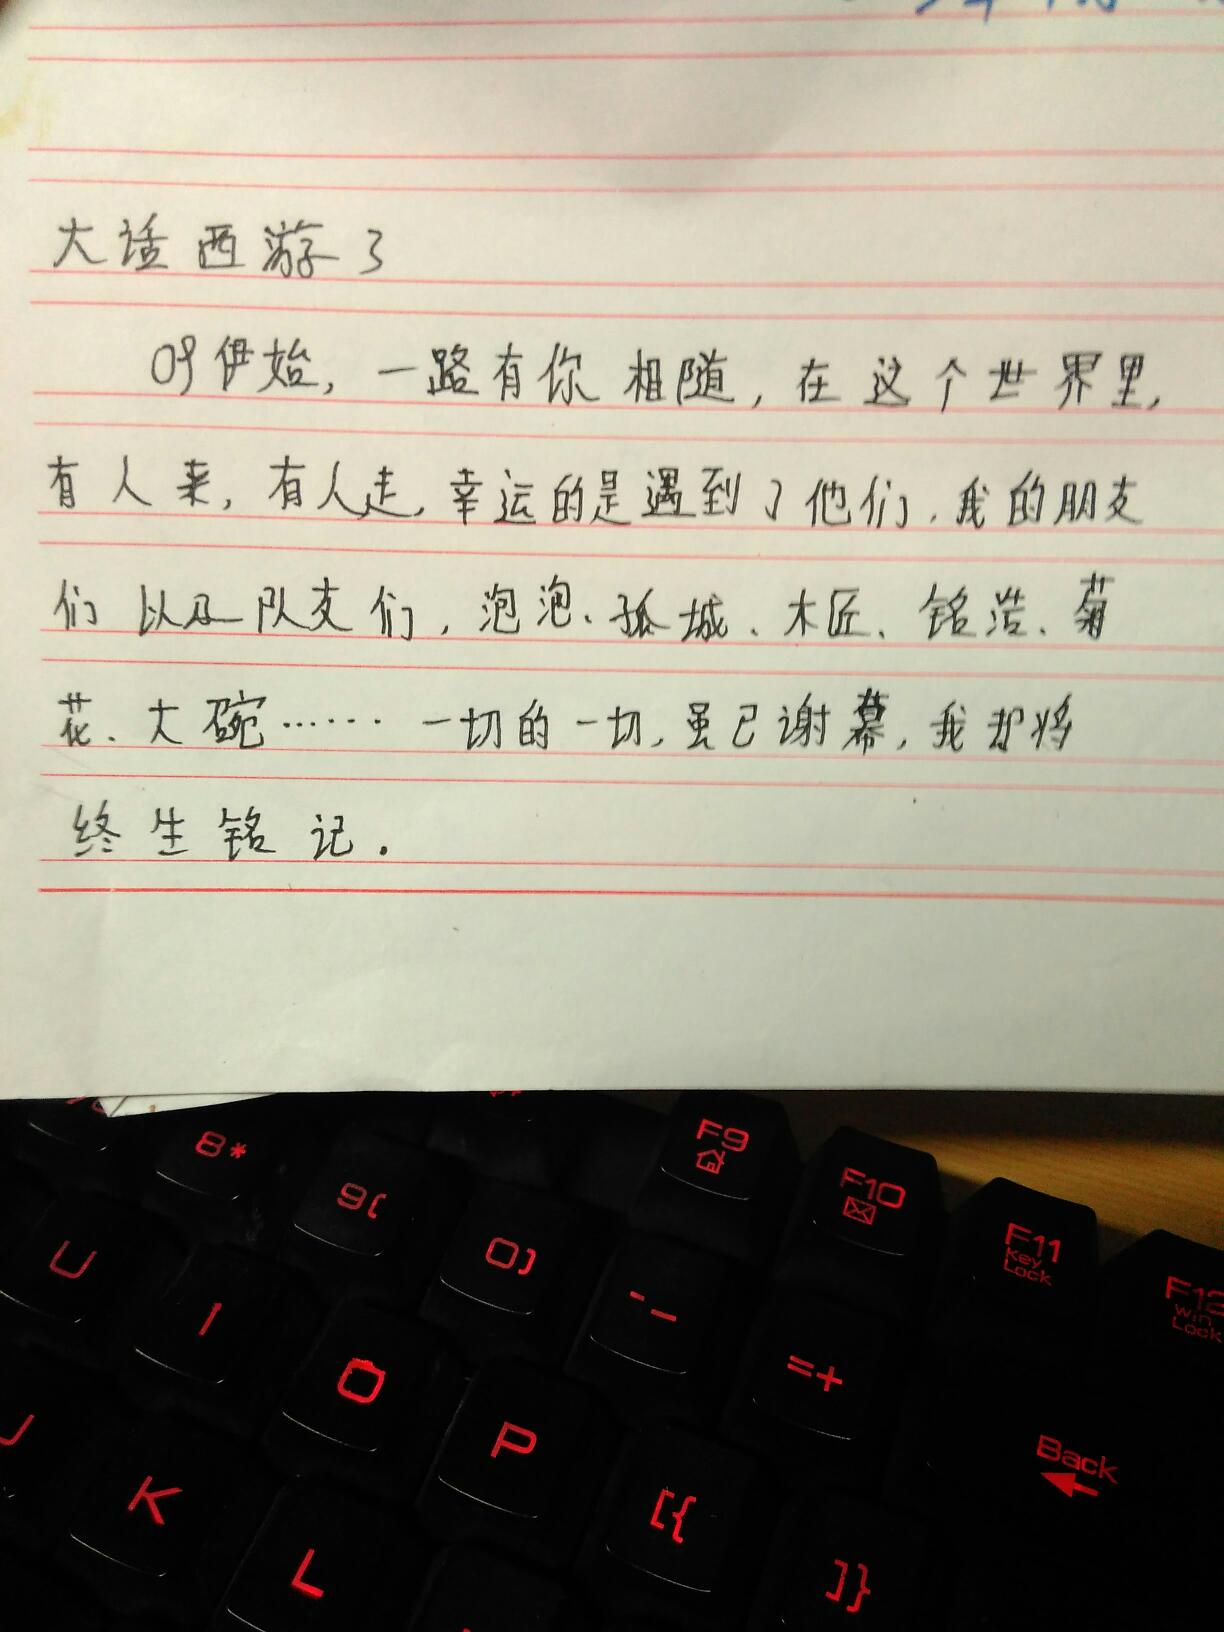 大话西游3
09伊始，一路有你相随，在这个世界里，
有人来，有人走，幸运的是遇到了他们，我的朋友
们以及队友们，泡泡、孤城、木匠、铭浩、菊
花、大碗……一切的一切，虽已谢幕，我却将
终生铭记.
F9
8*
F10
9(
F11
Key
Lock
0)
F12
Win
Lock
U
-_
I
=+
O
P
Back
J
K
[{
L
]}